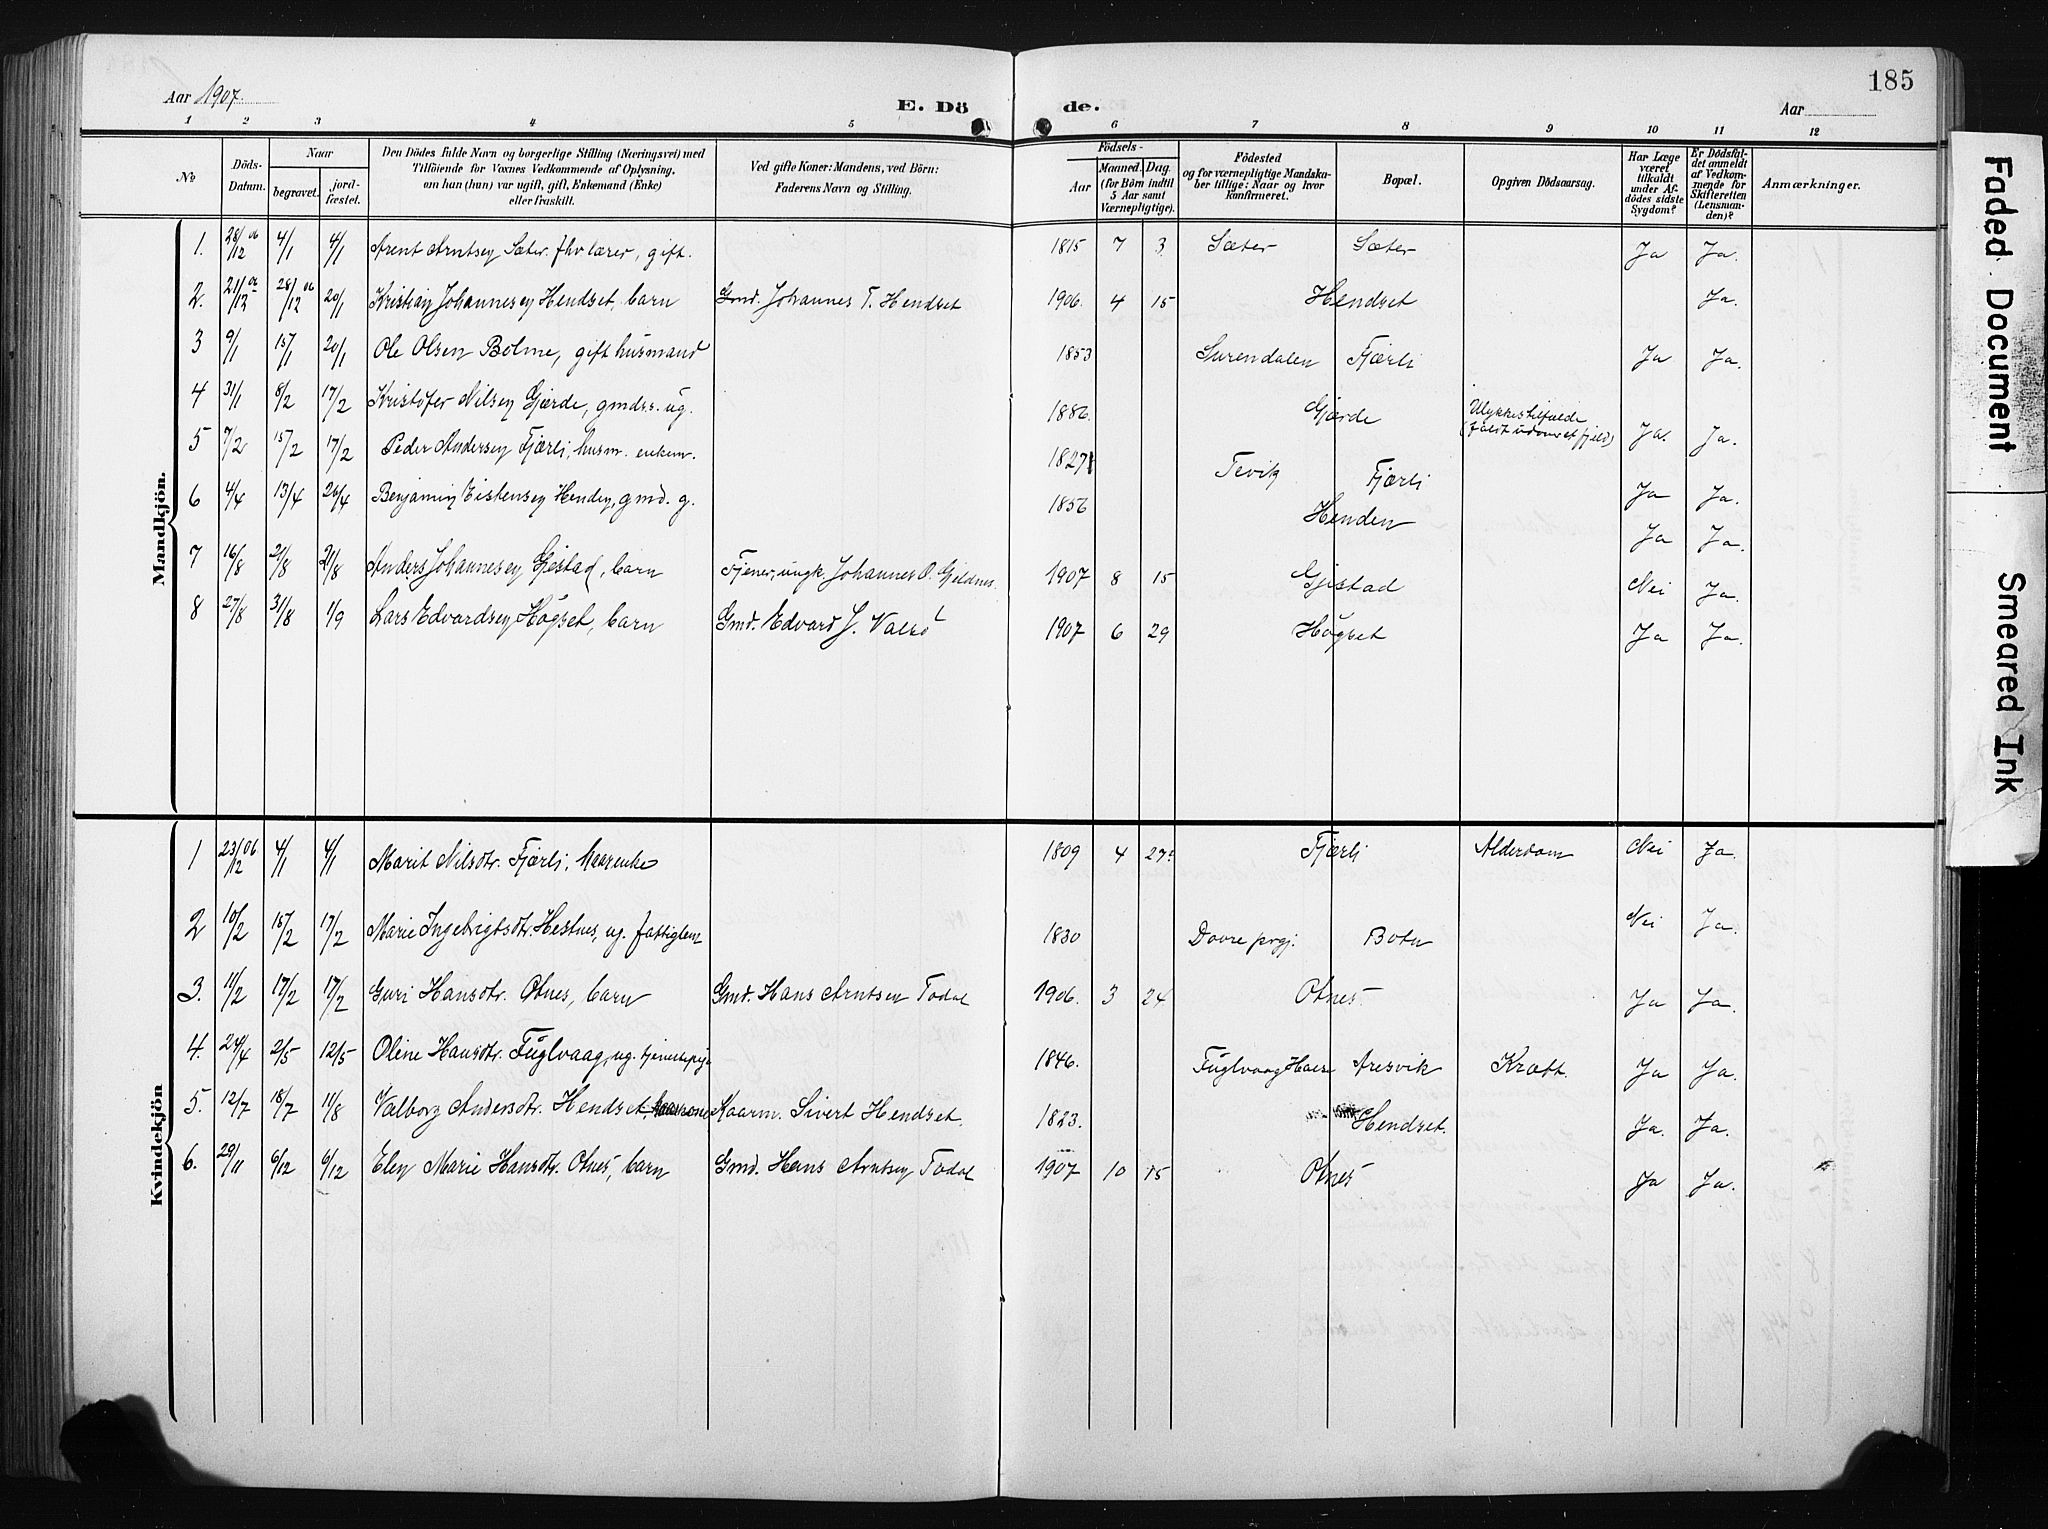 Aar 1907.
E. Döde.
Aar
185
1 2 3 4 5 6 7 8 9 10 11 12
No
Döds-Datum.
Naar
begravet.
jord-fæstet.
Den Dödes fulde Navn og borgerlige Stilling (Næringsvei) med
Tilföiende for Voxnes Vedkommende af Oplysning,
om han (hun) var ugift, gift, Enkemand (Enke)
eller fraskilt.
Ved gifte Koner: Mandens, ved Börn:
Faderens Navn og Stilling.
Födsels-
Aar
Maaned. Dag.
(for Börn indtil
5 Aar samt
Værnepligtige).
Födested
og for værnepligtige Mandska-
ber tillige: Naar og hvor
konfirmeret.
Bopæl.
Opgiven Dödsaarsag.
Har Læge
været
tilkaldt
under Af-
dödes sidste
Sygdom?
Er Dödsfal-
det anmeldt
af Vedkom-
mende for
Skifteretten
(Lensman-
den)?
Anmærkninger.
Mandkjön.
1. 28/12 06 4/1 4/1 Arent Arntsen Sæter. fhv lærer, gift. 1815 7 3 Sæter Sæter Ja Ja.
2. 21/12 06 28/12 06 20/1 Kristian Johannesen Hendset, barn Gmd. Johannes T. Hendset 1906. 4 15 Hendset Ja.
3 9/1 15/1 20/1 Ole Olsen Bolme, gift husmand 1853 Surendalen Fjærli Ja Ja.
4 31/1 8/2 17/2 Kristofer Nilsen Gjærde, gmdss. ug. 1886 Gjærde Ulykkestilfælde
(faldt udover et fjeld) Ja. Ja.
5 7/2 15/2 17/2 Peder Andersen Fjærli, husm. enkem. 1827 Tevik Fjærli Ja Ja.
6 4/4 13/4 26/4 Benjamin Eistensen Henden, gmd. g. 1856 Henden Ja Ja.
7 16/8 21/8 21/8 Anders Johannesen Gjistad, barn Tjener, ungk. Johannes O. Gjeldnes. 1907 8 15 Gjistad Nei Ja.
8 27/8 31/8 1/9 Lars Edvardsen Högset, barn Gmd. Edvard J. Valsö 1907 6 29 Högset Ja Ja.
Kvindekjön
1 23/12 06 4/1 4/1 Marit Nilsdtr. Fjærli, kaarenke 1809 4 27 Fjærli Alderdom Nei Ja.
2 10/2 15/2 17/2 Marie Ingebrigtsdtr. Hestnes, ug. fattiglem 1830 Dovre prgj. Botn Nei Ja.
3. 11/2 17/2 17/2 Guri Hansdtr. Otnes, barn Gmd. Hans Arntsen Todal 1906. 3 24 Otnes. Ja Ja.
4. 24/4 2/5 12/5 Oline Hansdtr. Fuglvaag, ug. tjenestepige 1846. Fuglvaag Halse Aresvik Kræft. Ja Ja.
5. 12/7 18/7 11/8 Valborg Andersdtr. Hendset, kaarkone Kaarm. Sivert Hendset. 1823. Hendset. Ja. Ja.
6. 29/11 6/12 6/12 Elen Marie Hansdtr. Otnes, barn Gmd. Hans Arntsen Todal 1907 10 15 Otnes Ja Ja.
Faded Document
Smeared Ink